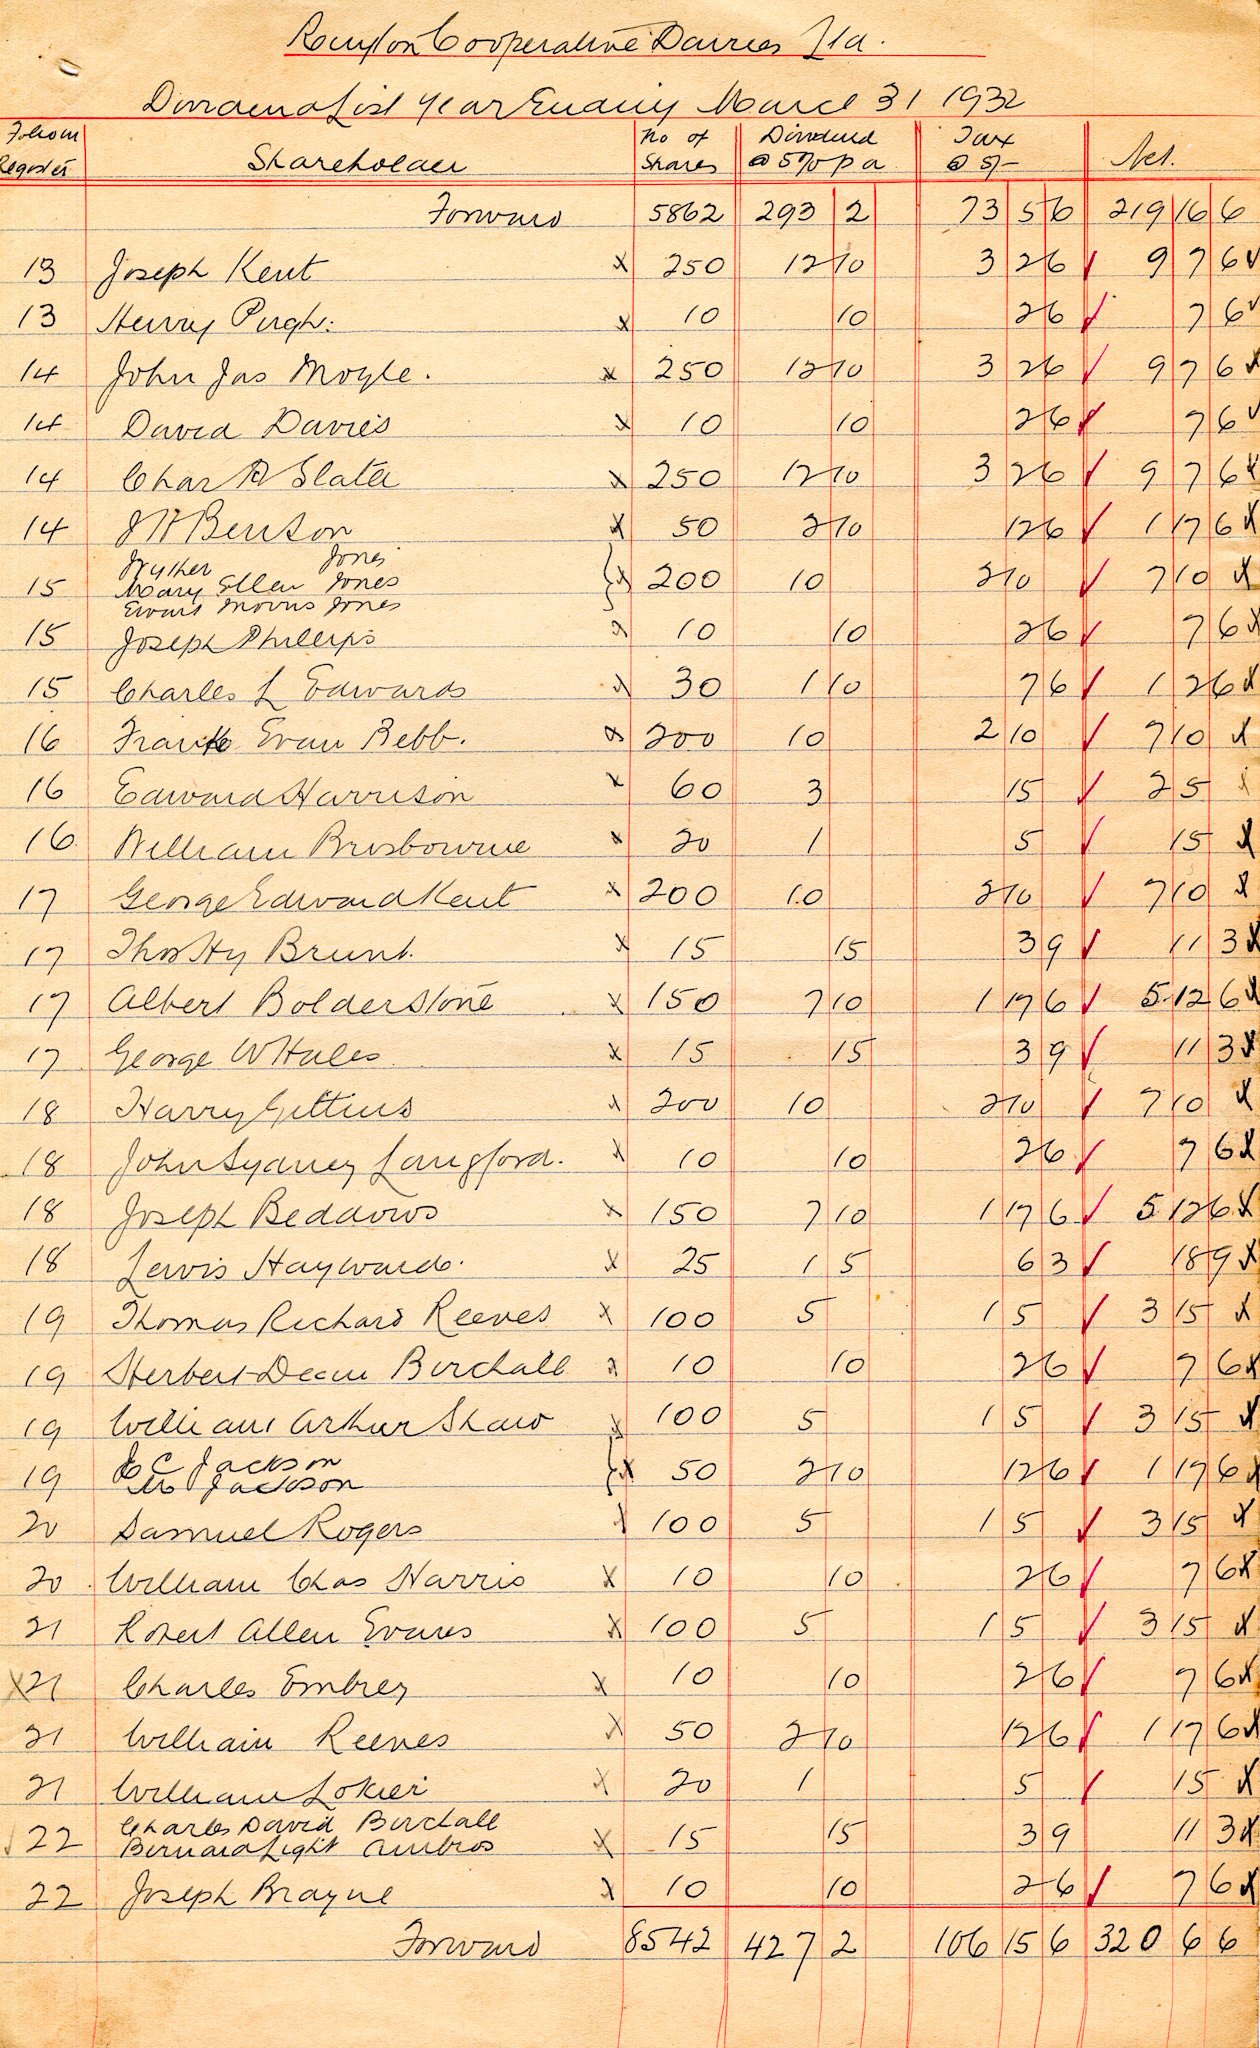 Ruyton Cooperative Dairies Ltd.
Dividend List Year Ending March 31 1932
Folio in Register Shareholder No of Shares Dividend @ 5% p a Tax @ 5/- Net.
Forward 5862 293 2 73 5 6 219 16 6
13 Joseph Kent x 250 12 10 3 2 6 ✓ 9 7 6 ✓
13 Henry Pugh. x 10 10 2 6 ✓ 7 6 ✓
14 John Jas Moyle. x 250 12 10 3 2 6 ✓ 9 7 6 x
14 David Davies x 10 10 2 6 ✓ 7 6 ✓
14 Chas A Slater x 250 12 10 3 2 6 ✓ 9 7 6 x
14 Benson x 50 2 10 12 6 ✓ 1 17 6 x
Jones
15 Mary Ellen Jones x 200 10 2 10 ✓ 7 10 x
Ewart Morris Jones
15 Joseph Phillips x 10 10 2 6 ✓ 7 6 x
15 Charles L Edwards x 30 1 10 7 6 ✓ 1 2 6 x
16 Frank Evan Bebb. x 200 10 2 10 ✓ 7 10 x
16 Edward Harrison x 60 3 15 ✓ 2 5 x
16 William Brisbourne x 20 1 5 ✓ 15 x
17 George Edward Kent x 200 10 2 10 ✓ 7 10 x
17 Thos Hy Brunt. x 15 15 3 9 ✓ 11 3 x
17 Albert Bolderstone x 150 7 10 1 17 6 ✓ 5 12 6 x
17 George W Hales x 15 15 3 9 ✓ 11 3 x
18 Harry Gittins x 200 10 2 10 ✓ 7 10 x
18 John Sydney Langford. x 10 10 2 6 ✓ 7 6 x
18 Joseph Beddows x 150 7 10 1 17 6 ✓ 5 12 6 x
18 Lewis Hayward. x 25 1 5 6 3 ✓ 18 9 x
19 Thomas Richard Reeves x 100 5 1 5 ✓ 3 15 x
19 Herbert Dean Birchall x 10 10 2 6 ✓ 7 6 x
19 William Arthur Shaw x 100 5 1 5 ✓ 3 15 x
C Jackson
19 Jackson x 50 2 10 12 6 ✓ 1 17 6 x
20 Samuel Rogers x 100 5 1 5 ✓ 3 15 x
20 William Chas Harris x 10 10 2 6 ✓ 7 6 x
21 Robert Allen Evans x 100 5 1 5 ✓ 3 15 x
x 21 Charles Embrey x 10 10 2 6 ✓ 7 6 x
21 William Reeves x 50 2 10 12 6 ✓ 1 17 6 x
21 William Lokier x 20 1 5 ✓ 15 x
Charles David Birchall
22 Bernard Light Ambros x 15 15 3 9 11 3 x
22 Joseph Brayne x 10 10 2 6 ✓ 7 6 x
Forward 8542 427 2 106 15 6 320 6 6